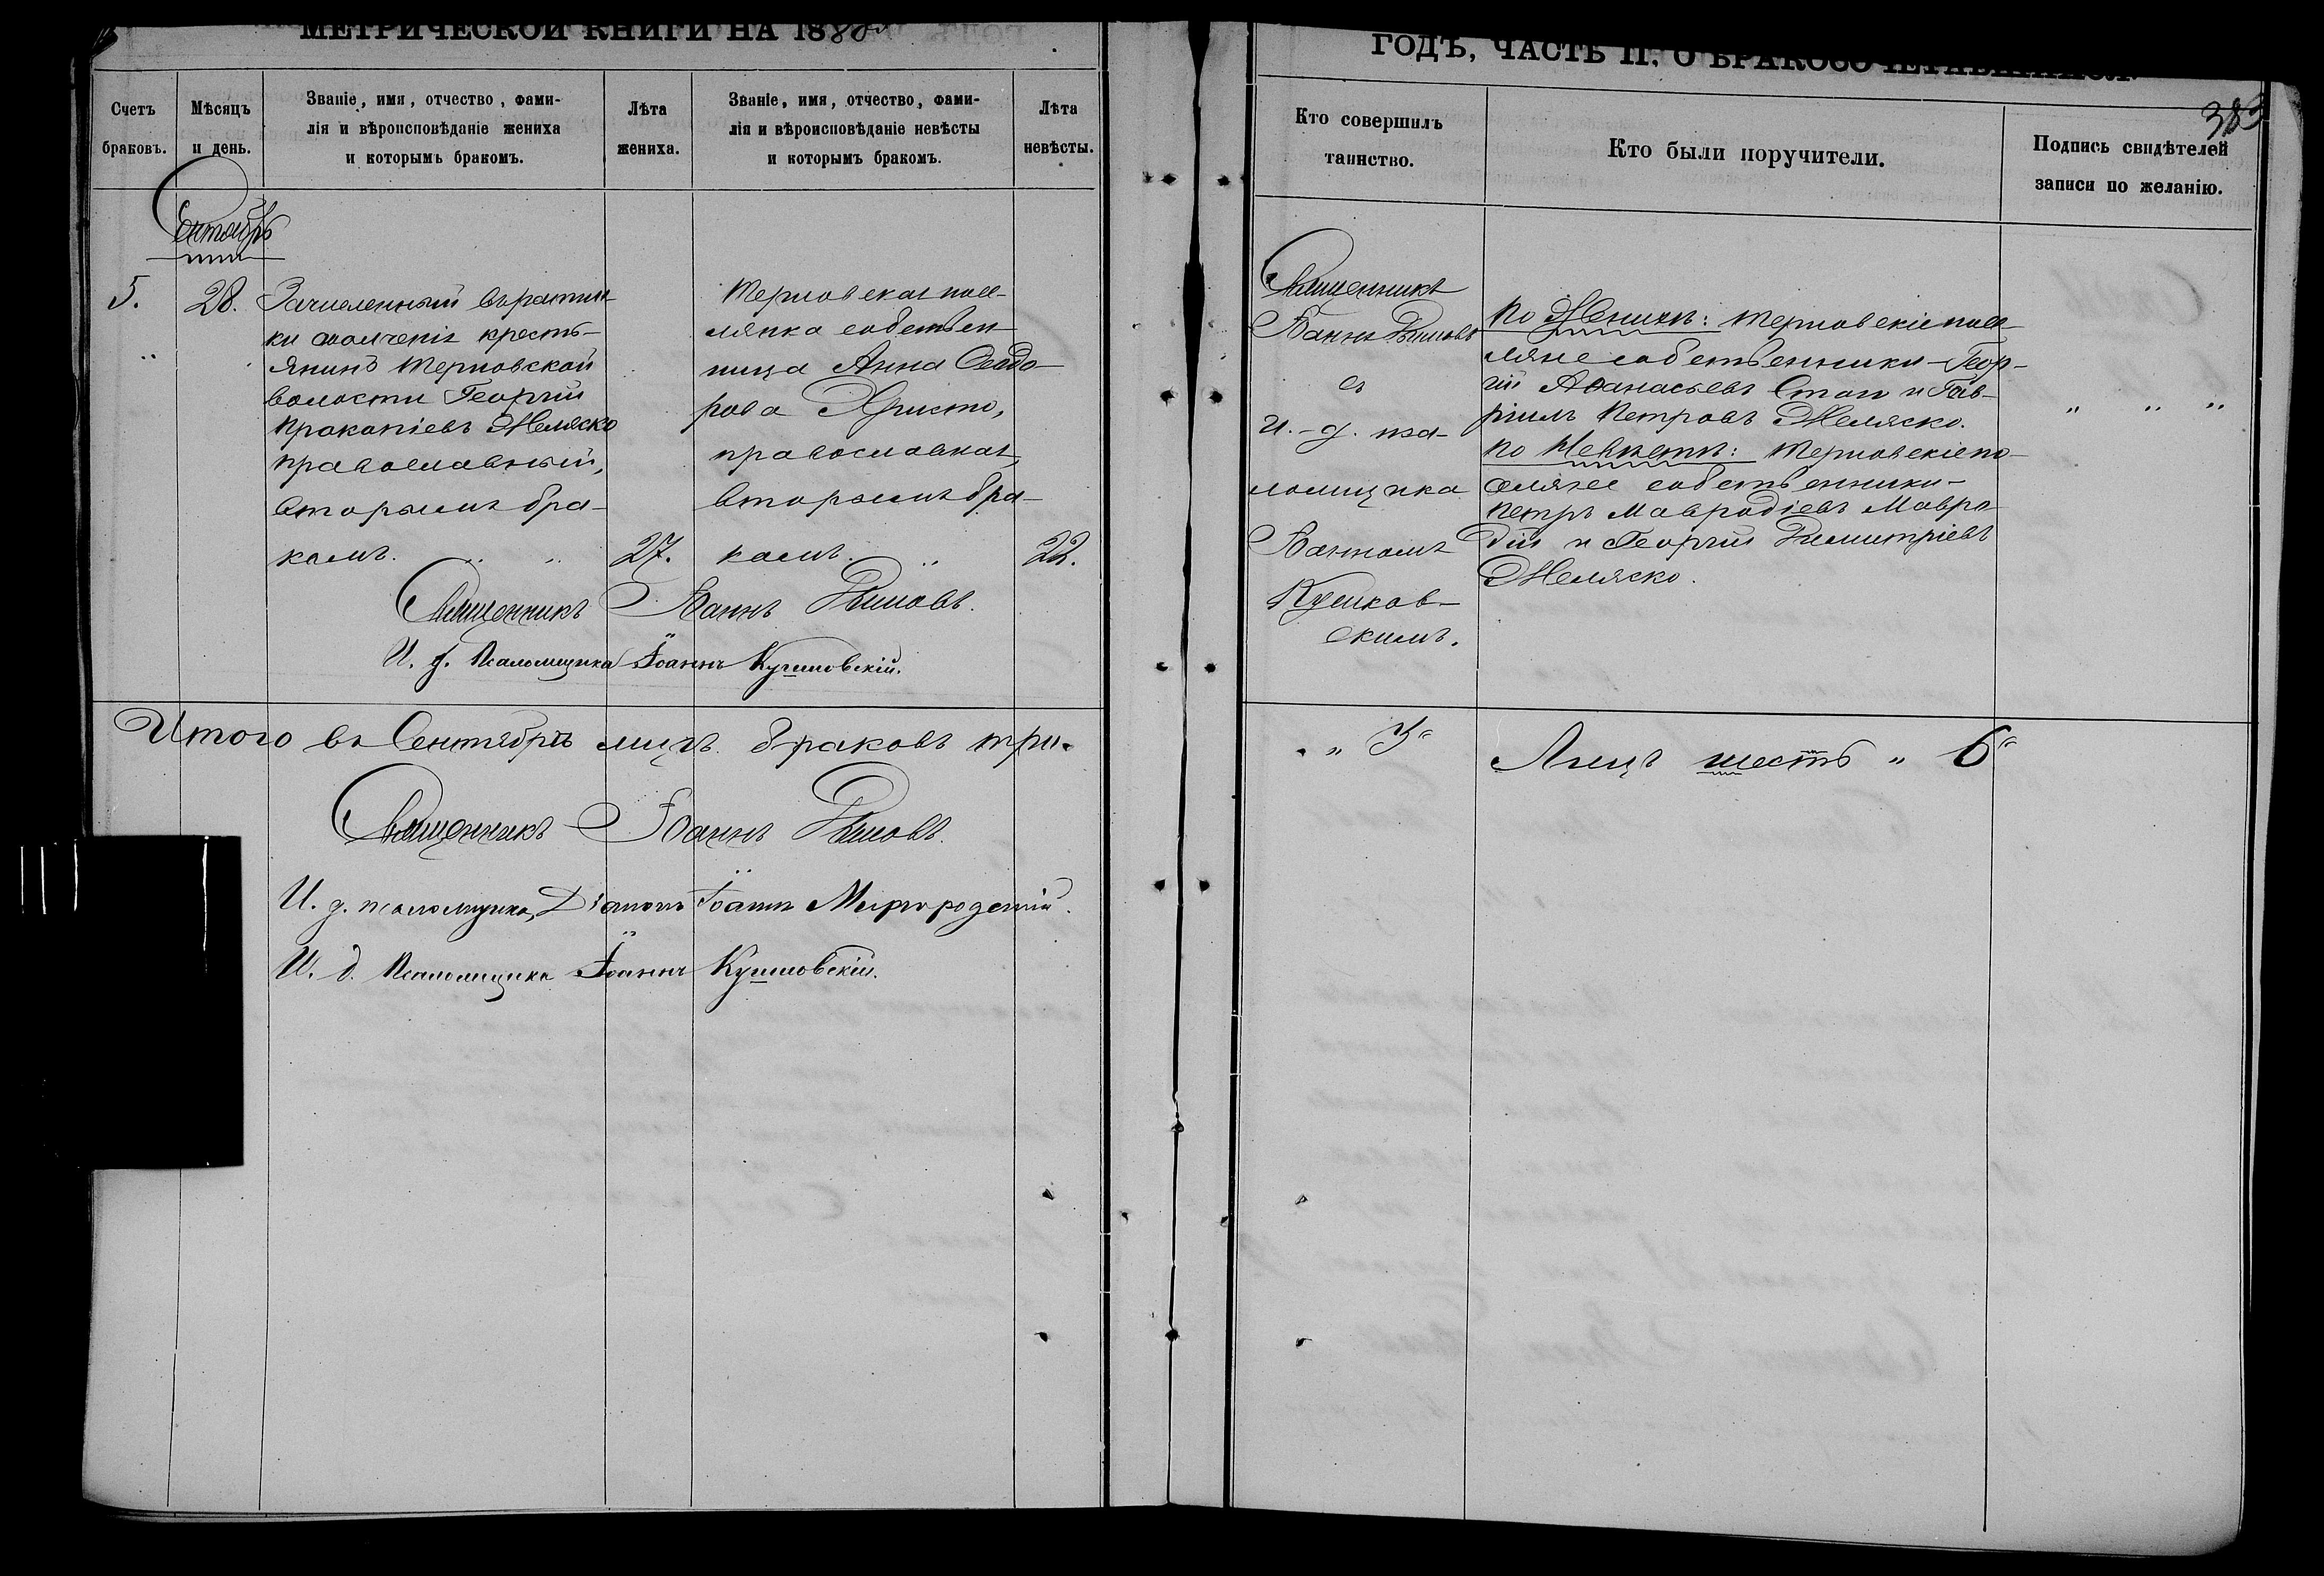 МЕТРИЧЕСКОЙ КНИГИ НА 1880
ГОДЪ, ЧАСТЬ II, О БРАКОСОЧЕТАВШИХСЯ.
383
Счетъ браковъ.
Мѣсяцъ и день.
Званіе, имя, отчество, фами-
лія и вѣроисповѣданіе жениха
и которымъ бракомъ.
Лѣта
жениха.
Званіе, имя, отчество, фами-
лія и вѣроисповѣданіе невѣсты
и которымъ бракомъ.
Лѣта
невѣсты.
Кто совершилъ
таинство.
Кто были поручители.
Подпись свидѣтелей
записи по желанію.
Сентябрь
5.
28.
Зачисленный въ ратни-
ки ополченія кресть-
янинъ Терновской
волости Георгій
Прокопіевъ Желяско
православный,
вторымъ бра-
комъ. " "
27.
Терновская посе-
лянка собствен-
ница Анна Ѳеодо-
рова Христо,
православная,
вторымъ бра-
комъ. "
22.
Священникъ Іоаннъ
И. д. Псаломщика Іоаннъ
Священникъ
Іоаннъ
съ
и. д. пса-
ломщика
Іоанномъ
скимъ.
По Женихѣ: Терновскіе посе-
ляне собственники - Геор-
гій Аѳанасьевъ Стаи и Гав-
ріилъ Петровъ Желяско.
По Невѣстѣ: Терновскіе по-
селяне собственники -
Петръ Мавродіевъ Мавро-
дій и Георгій Димитріевъ
Желяско.
" " "
Итого въ Сентябрѣ мцѣ. браковъ три.
" 3 "
Лицъ шесть " 6 "
Священникъ Іоаннъ
И. д. псаломщика, Діаконъ Іоаннъ Миргородскій.
И. д. Псаломщика Іоаннъ